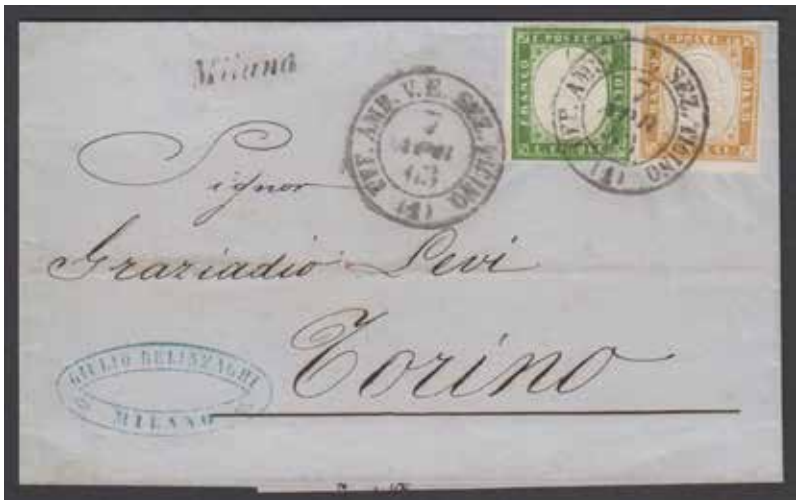 Milano
UFF. AMB. V. E. SEZ. TICINO
7
63
(1)
FRANCO
C. POSTE
BOLLO
UFF. AMB. SEZ. TICINO
7
(1)
Signor
Graziadio Levi
Torino
GIULIO BELINZAGHI
MILANO